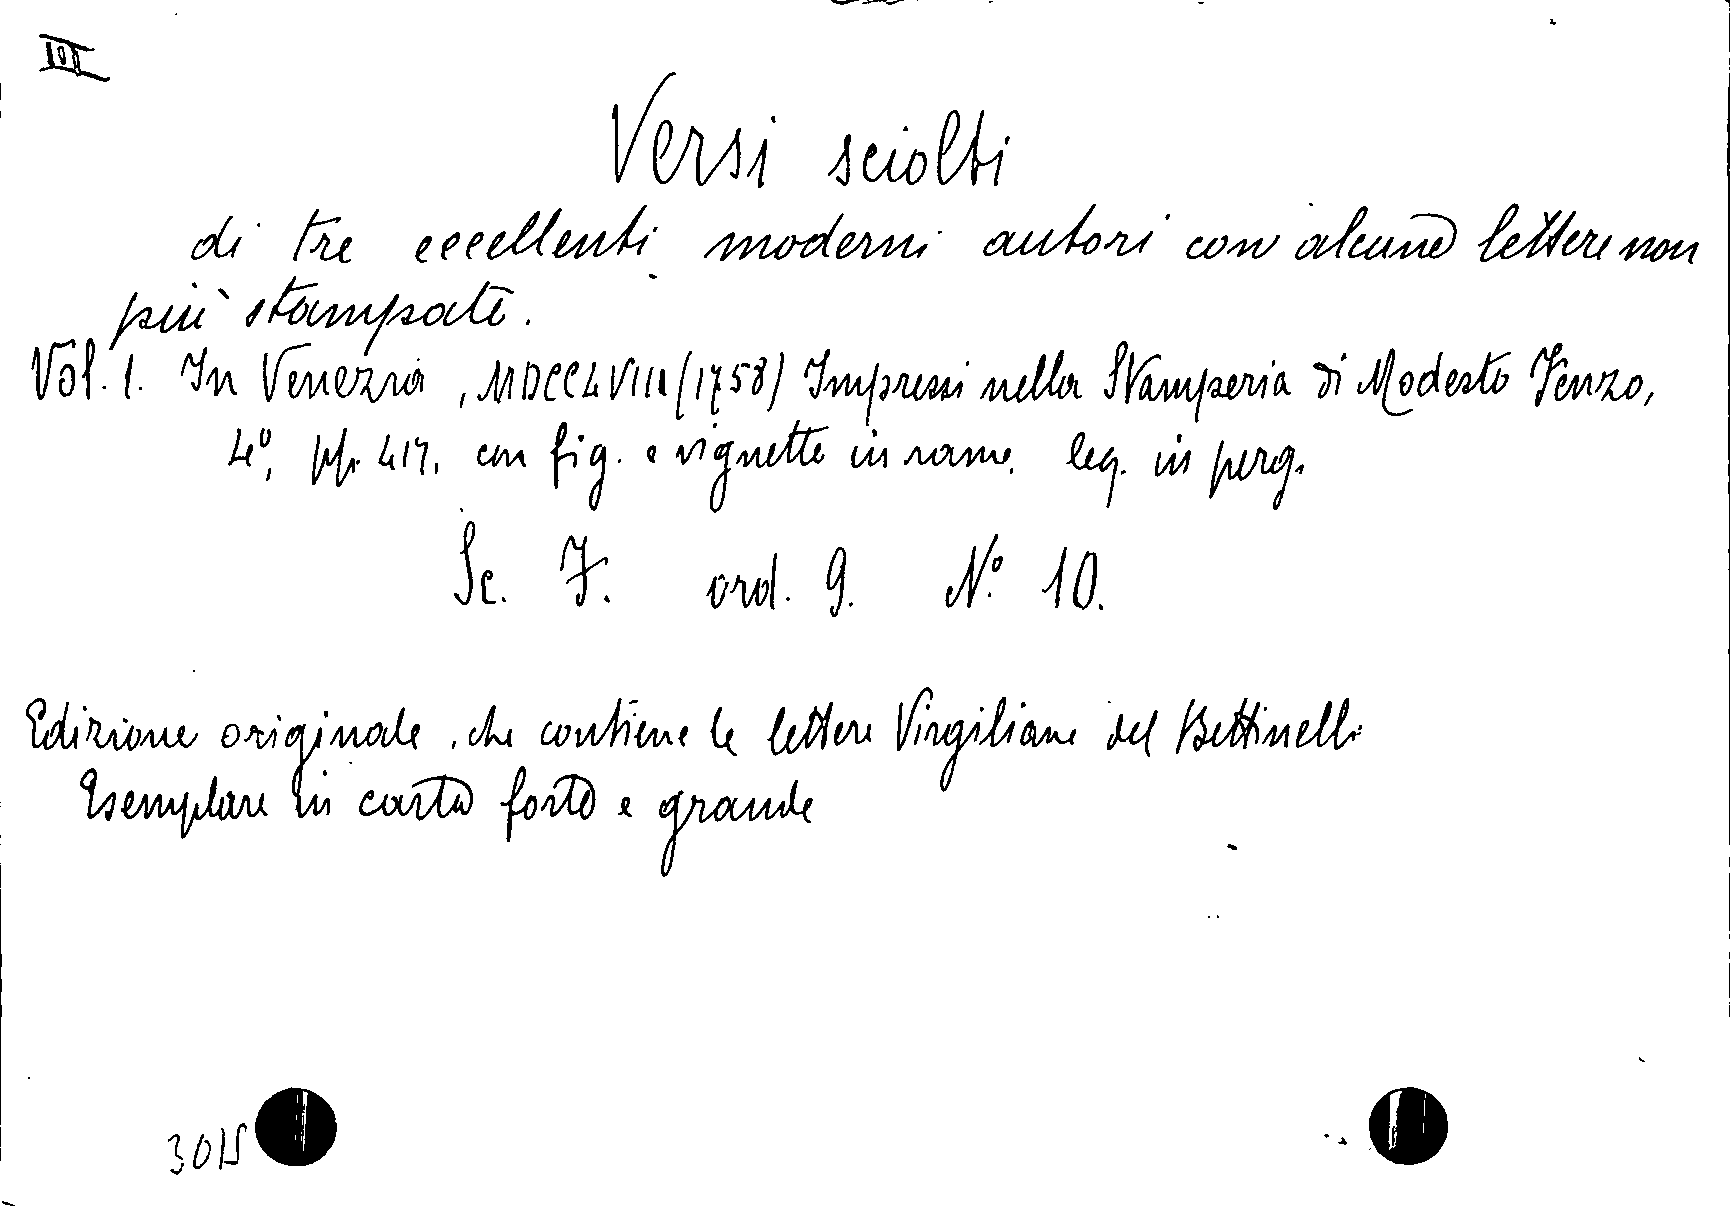 III
Versi sciolti
di tre eccellenti moderni autori con alcune lettere non
più stampate.
Vol. 1. In Venezia, MDCCLVIII (1758) Impressi nella Stamperia di Modesto Fenzo,
4º, pp. 417. con fig. e vignette in rame. leg. in perg.
Sc. F. ord. 9. Nº 10.
Edizione originale, che contiene le lettere Virgiliane del Bettinelli
Esemplare in carta forte e grande
3015